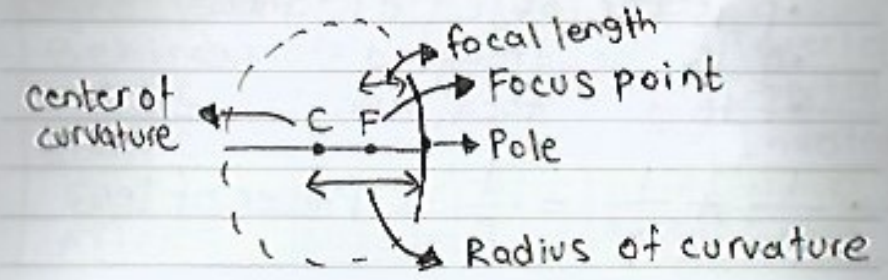 focal length
Focus point
center of
curvature
C F
Pole
Radius of curvature